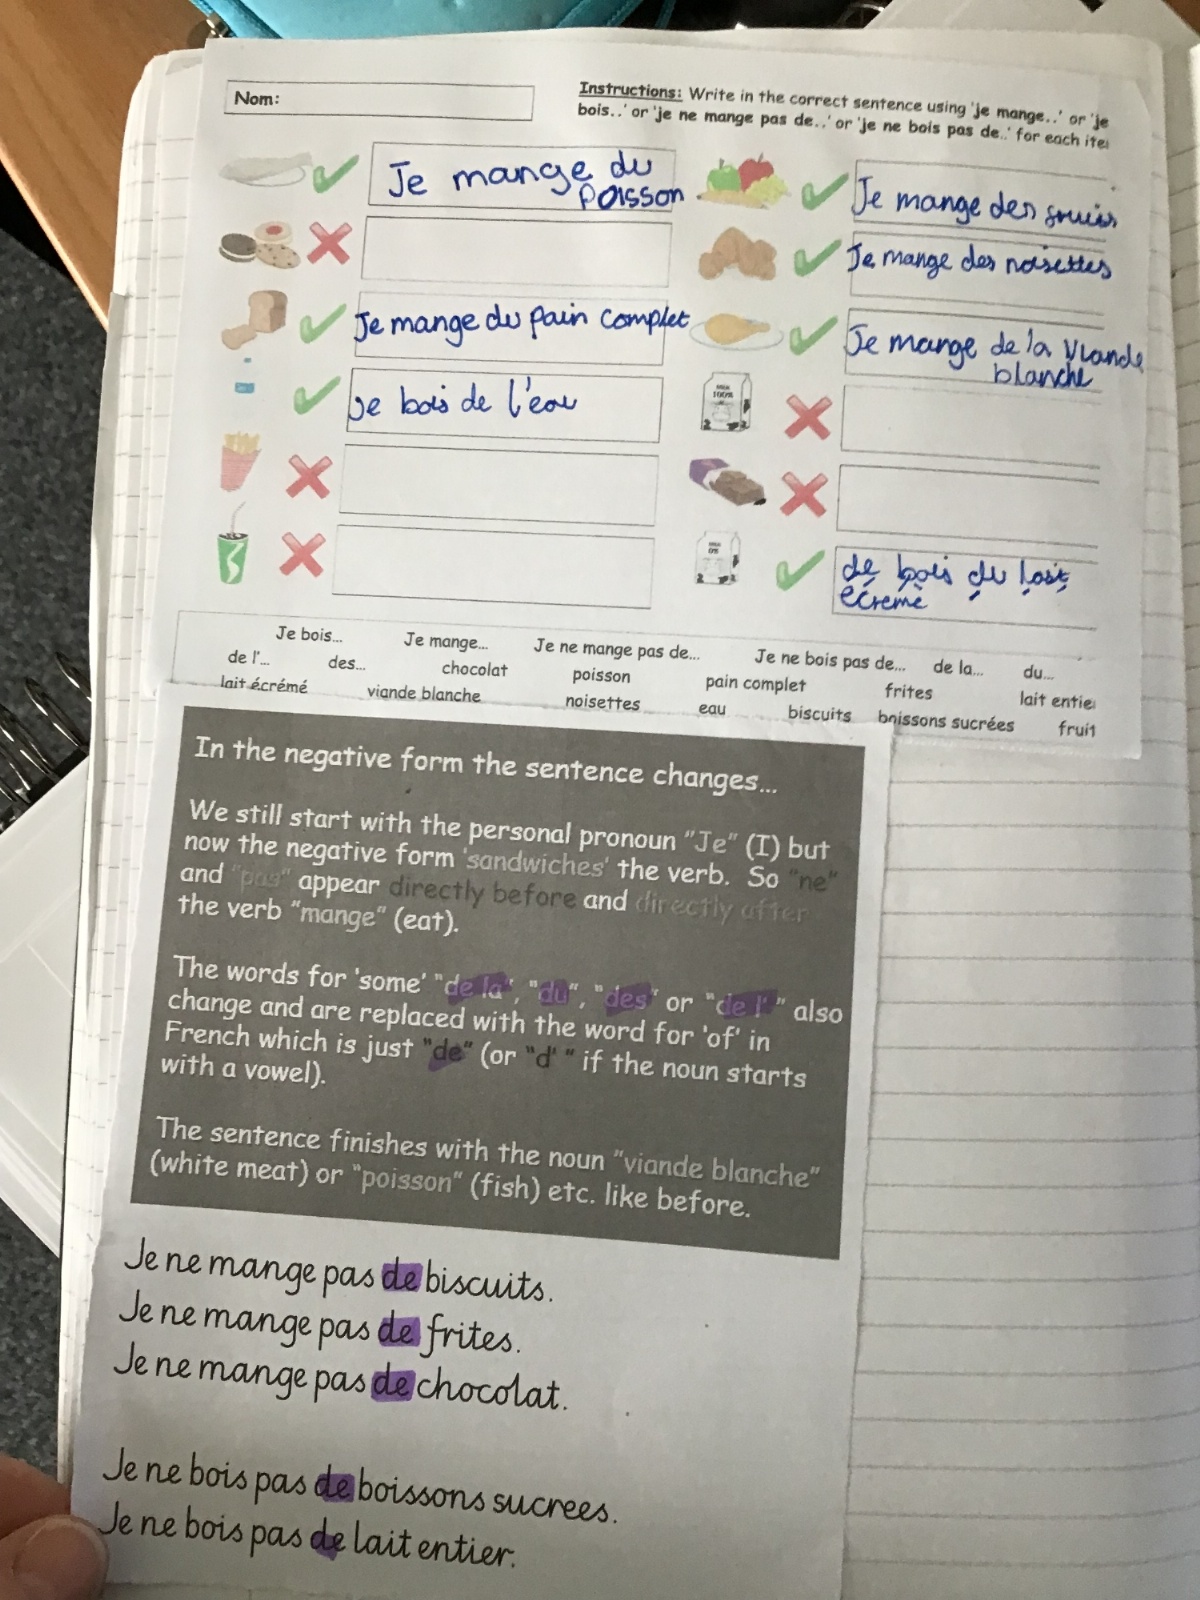 Nom:
Instructions: Write in the correct sentence using 'je mange..' or 'je
bois..' or 'je ne mange pas de..' or 'je ne bois pas de..' for each ite
Je mange du
poisson
Je mange du pain complet
Je bois de l'eau
Je mange des
Je mange des noisettes
Je mange de la viande
blanche
MILK
100%
MILK
0%
de bois du lait
écremé
Je bois... Je mange... Je ne mange pas de... Je ne bois pas de... de la... du...
de l'... des... chocolat poisson pain complet frites lait entie
lait écrémé viande blanche noisettes eau biscuits boissons sucrées fruit
In the negative form the sentence changes...
We still start with the personal pronoun "Je" (I) but
now the negative form 'sandwiches' the verb. So "ne"
and "pas" appear directly before and directly after
the verb "mange" (eat).
The words for 'some' "de la", "du", "des" or "de l' " also
change and are replaced with the word for 'of' in
French which is just "de" (or "d' " if the noun starts
with a vowel).
The sentence finishes with the noun "viande blanche"
(white meat) or "poisson" (fish) etc. like before.
Je ne mange pas de biscuits.
Je ne mange pas de frites.
Je ne mange pas de chocolat.
Je ne bois pas de boissons sucrees.
Je ne bois pas de lait entier.